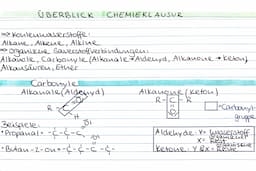 ÜBERBLICK CHEMIEKLAUSUR
⇒ Kohlenwasserstoffe:
Alkane, Alkene, Alkine
⇒ Organische Sauerstoffverbindungen:
Alkanole, Carbonyle (Alkanale → Aldehyd, Alkanone → Keton)
Alkansäuren, Ether
Carbonyle
Alkanale (Aldehyd)
Alkanone (Keton)
R - C
H
R - C - R
Carbonyl-
gruppe
Beispiele:
• Propanal =
• Butan-2-on =
Aldehyde: Y = Wasserstoff
X =
Ketone: Y & X =